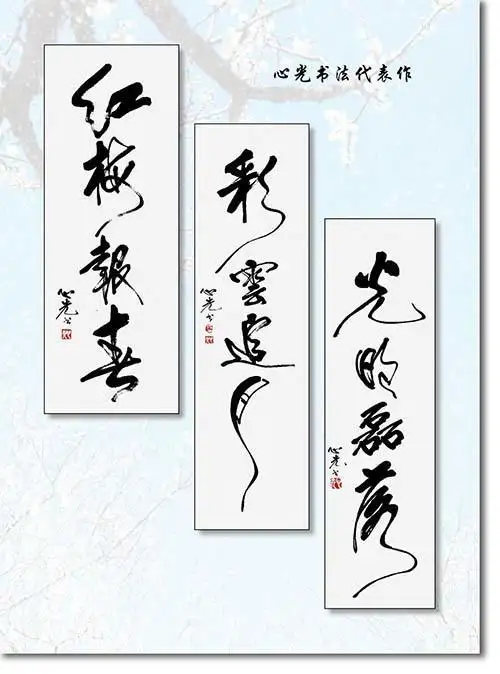 心光书法代表作
红梅報春
心光书
彩雲追月
心光书
光明磊落
心光书